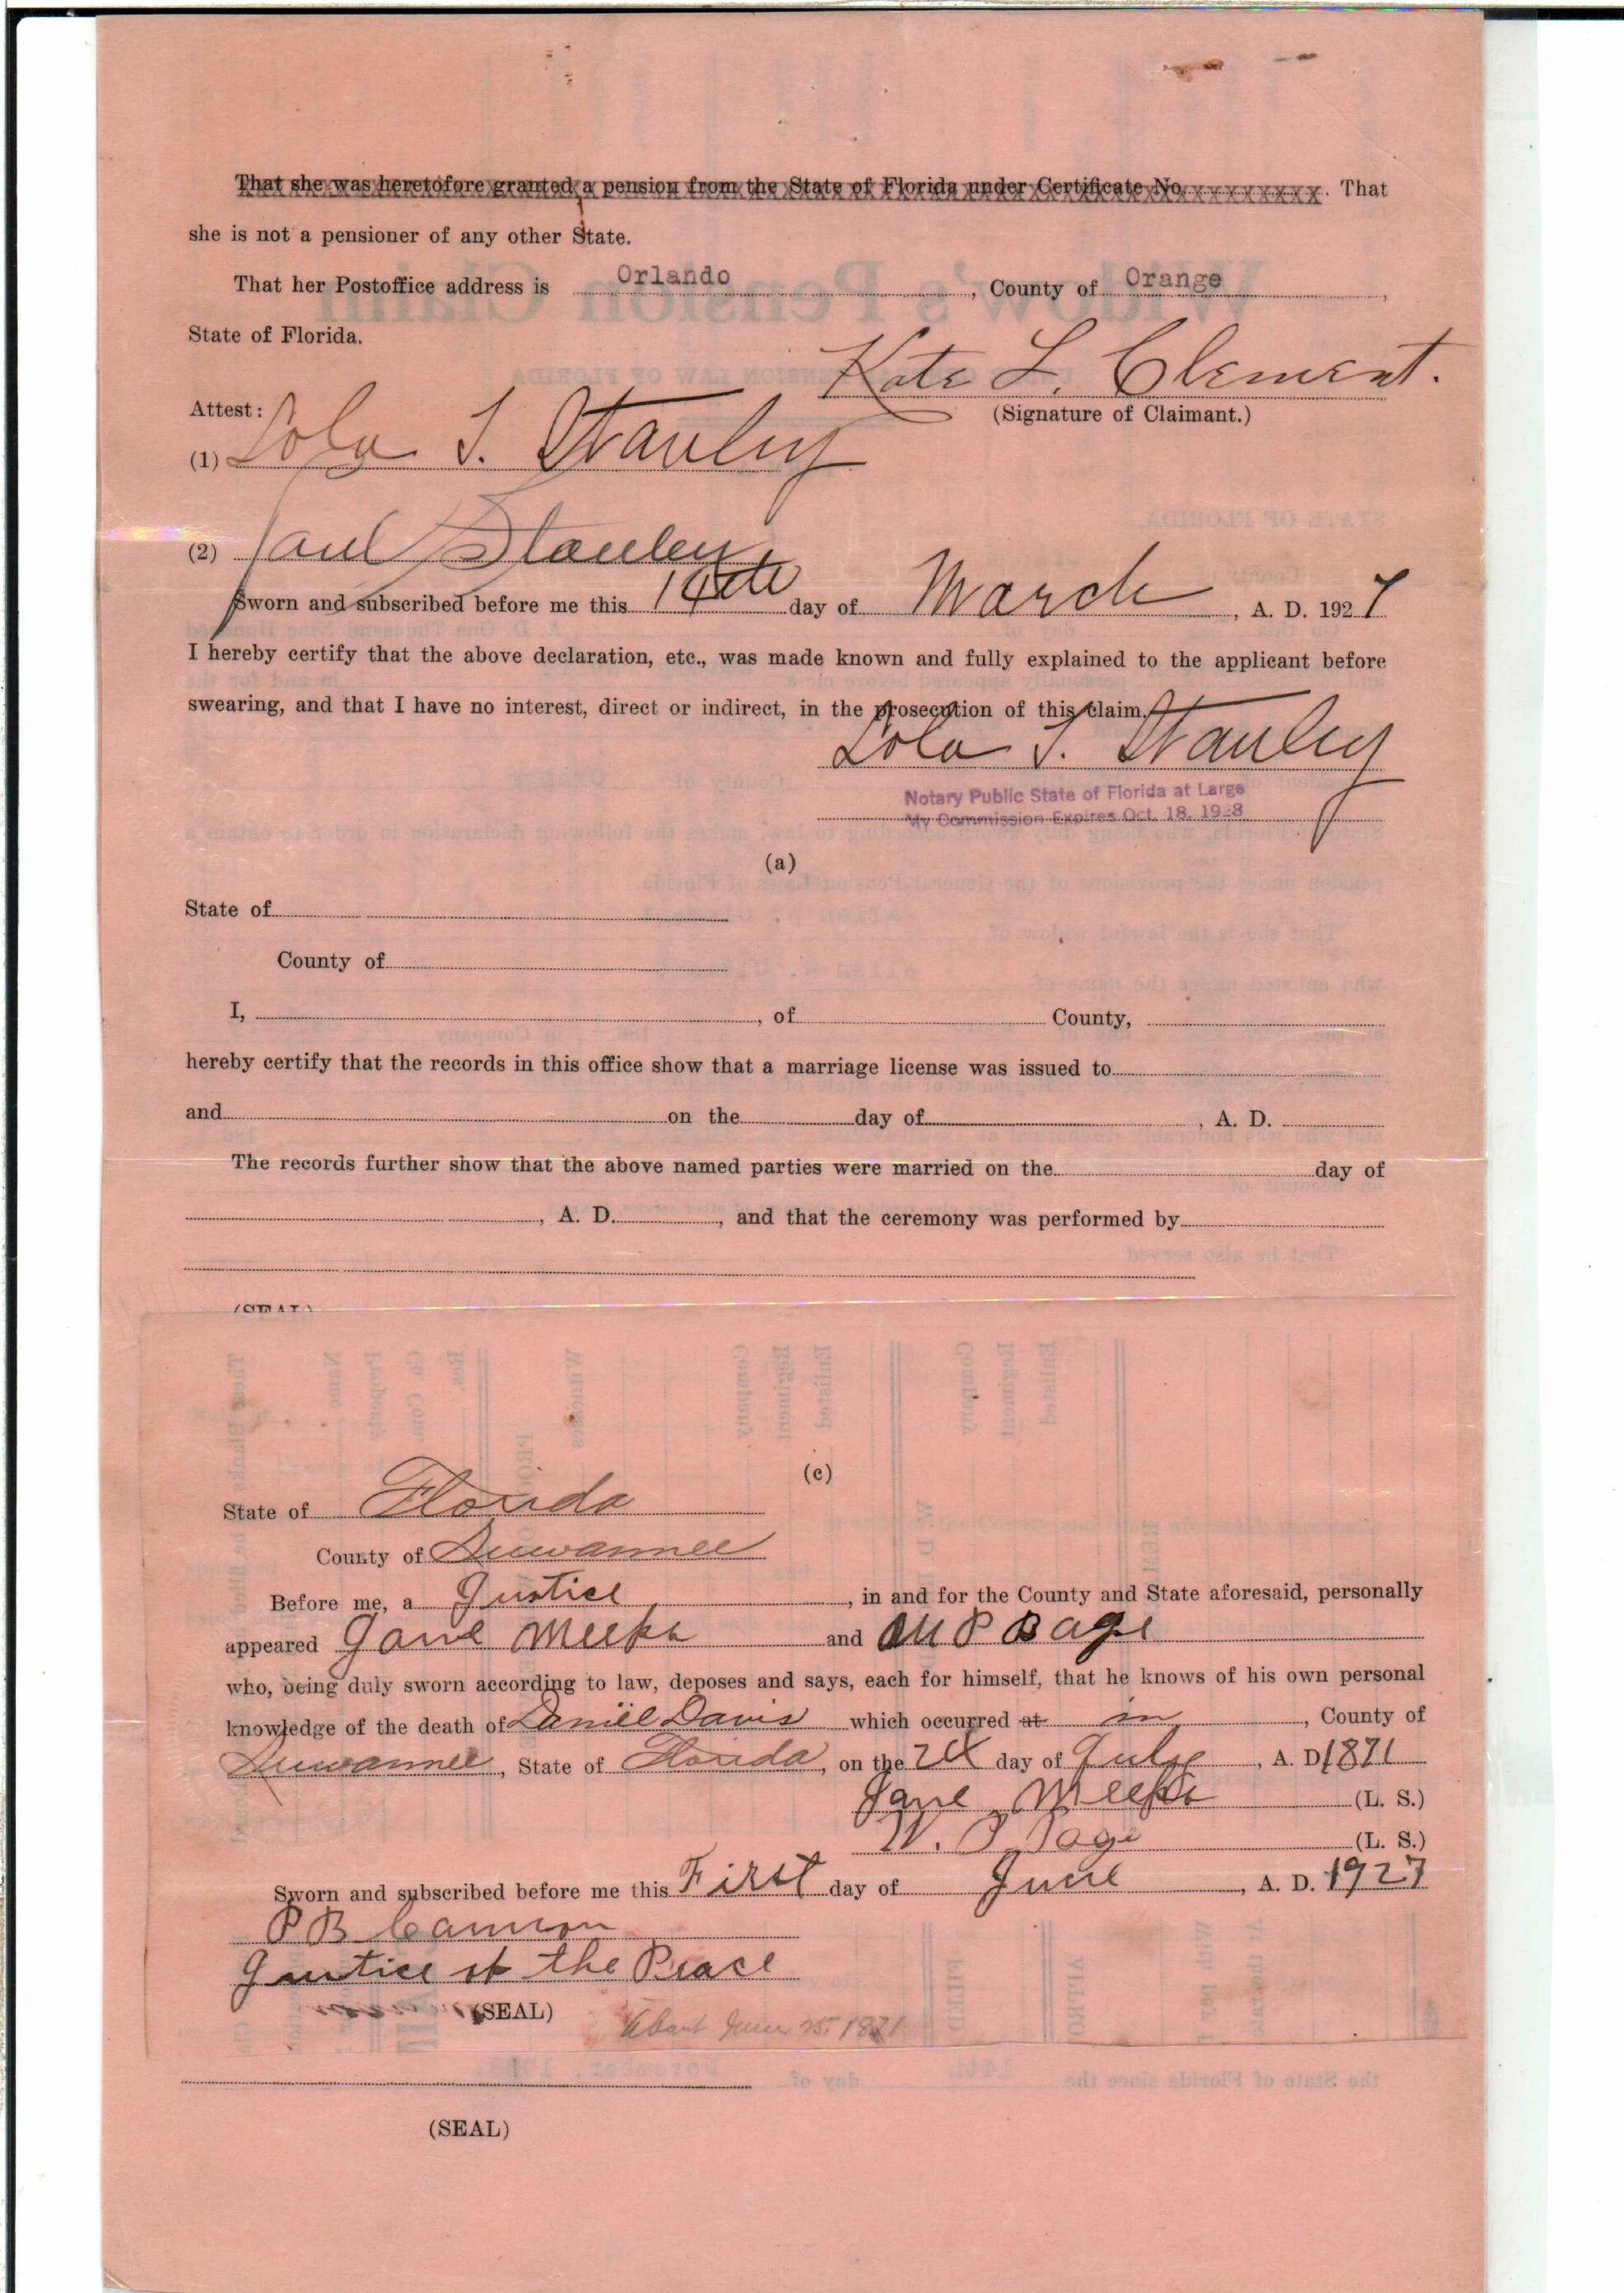 That she was heretofore granted a pension from the State of Florida under Certificate No. xxxxxxxxx. That
she is not a pensioner of any other State.
That her Postoffice address is Orlando, County of Orange,
State of Florida.
Kate L. Clement.
Attest:
(Signature of Claimant.)
(1) Lola T. Stanley
(2) Paul Stanley
Sworn and subscribed before me this day of March, A. D. 1927
I hereby certify that the above declaration, etc., was made known and fully explained to the applicant before
swearing, and that I have no interest, direct or indirect, in the prosecution of this claim.
Lola T. Stanley
Notary Public State of Florida at Large
My Commission Expires Oct. 18, 1928
(a)
State of
County of
I, , of County,
hereby certify that the records in this office show that a marriage license was issued to
and on the day of , A. D.
The records further show that the above named parties were married on the day of
, A. D. , and that the ceremony was performed by
(SEAL)
(c)
State of Florida
County of Suwannee
Before me, a Justice, in and for the County and State aforesaid, personally
appeared Jane Meeks and Page
who, being duly sworn according to law, deposes and says, each for himself, that he knows of his own personal
knowledge of the death of Daniel Davis which occurred at in, County of
Suwannee, State of Florida, on the day of July, A. D. 1871
Jane Meeks (L. S.)
Page (L. S.)
Sworn and subscribed before me this First day of June, A. D. 1927
P B Cannon
Justice of the Peace
(SEAL)
About June 25, 1871
the State of Florida since the 14th day of November,
(SEAL)